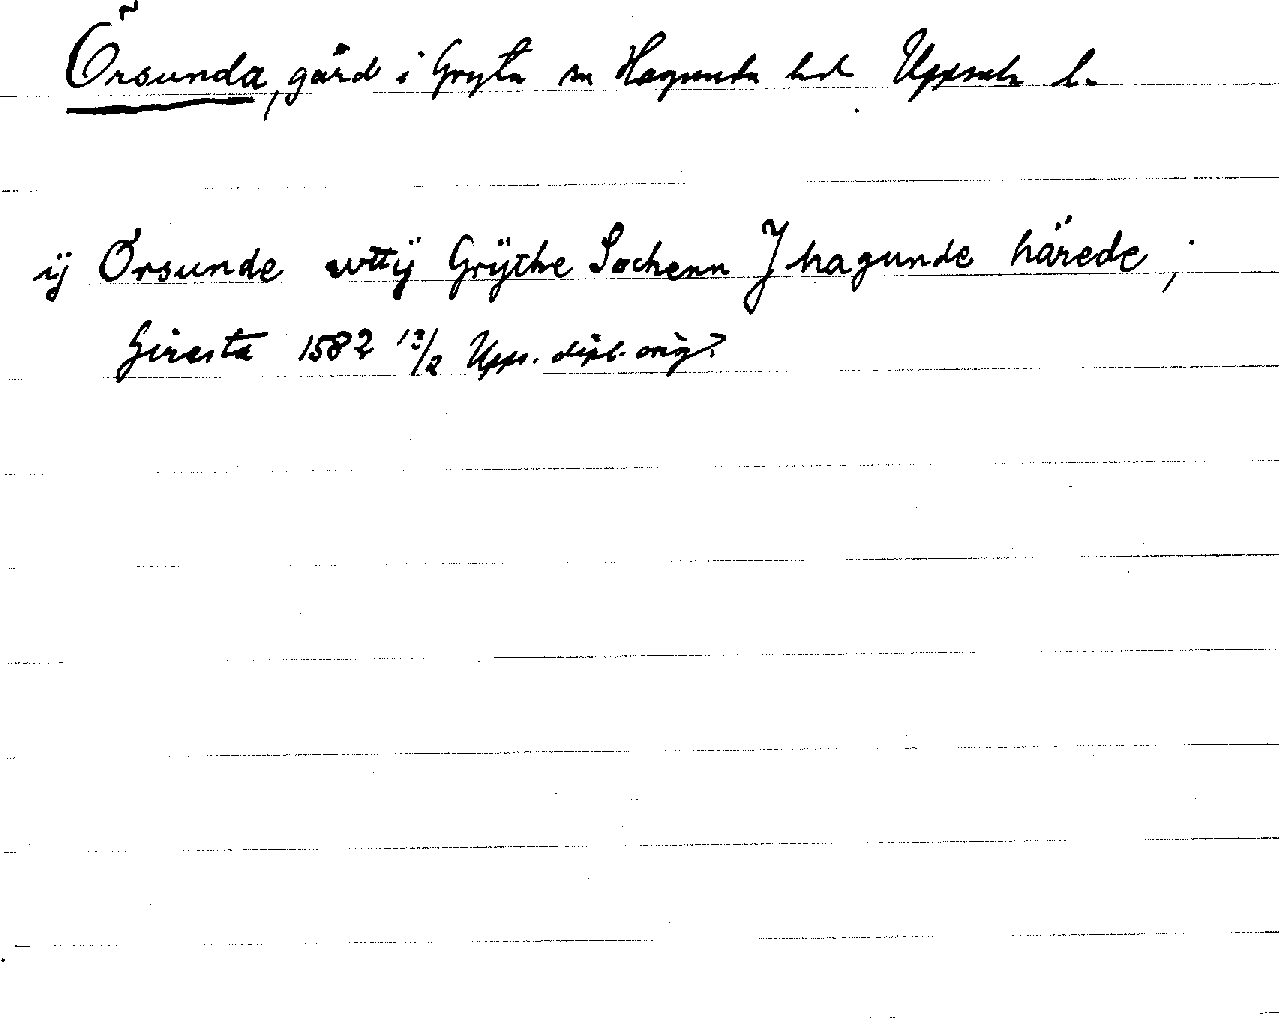 Örsunda, gård i Gryta sn Hagunda hd Uppsala l.
ij Örsunde wttÿ Grÿthe Sochenn J hagunde härede ;
Giresta 1582 12/2 Upps. dipl. orig.